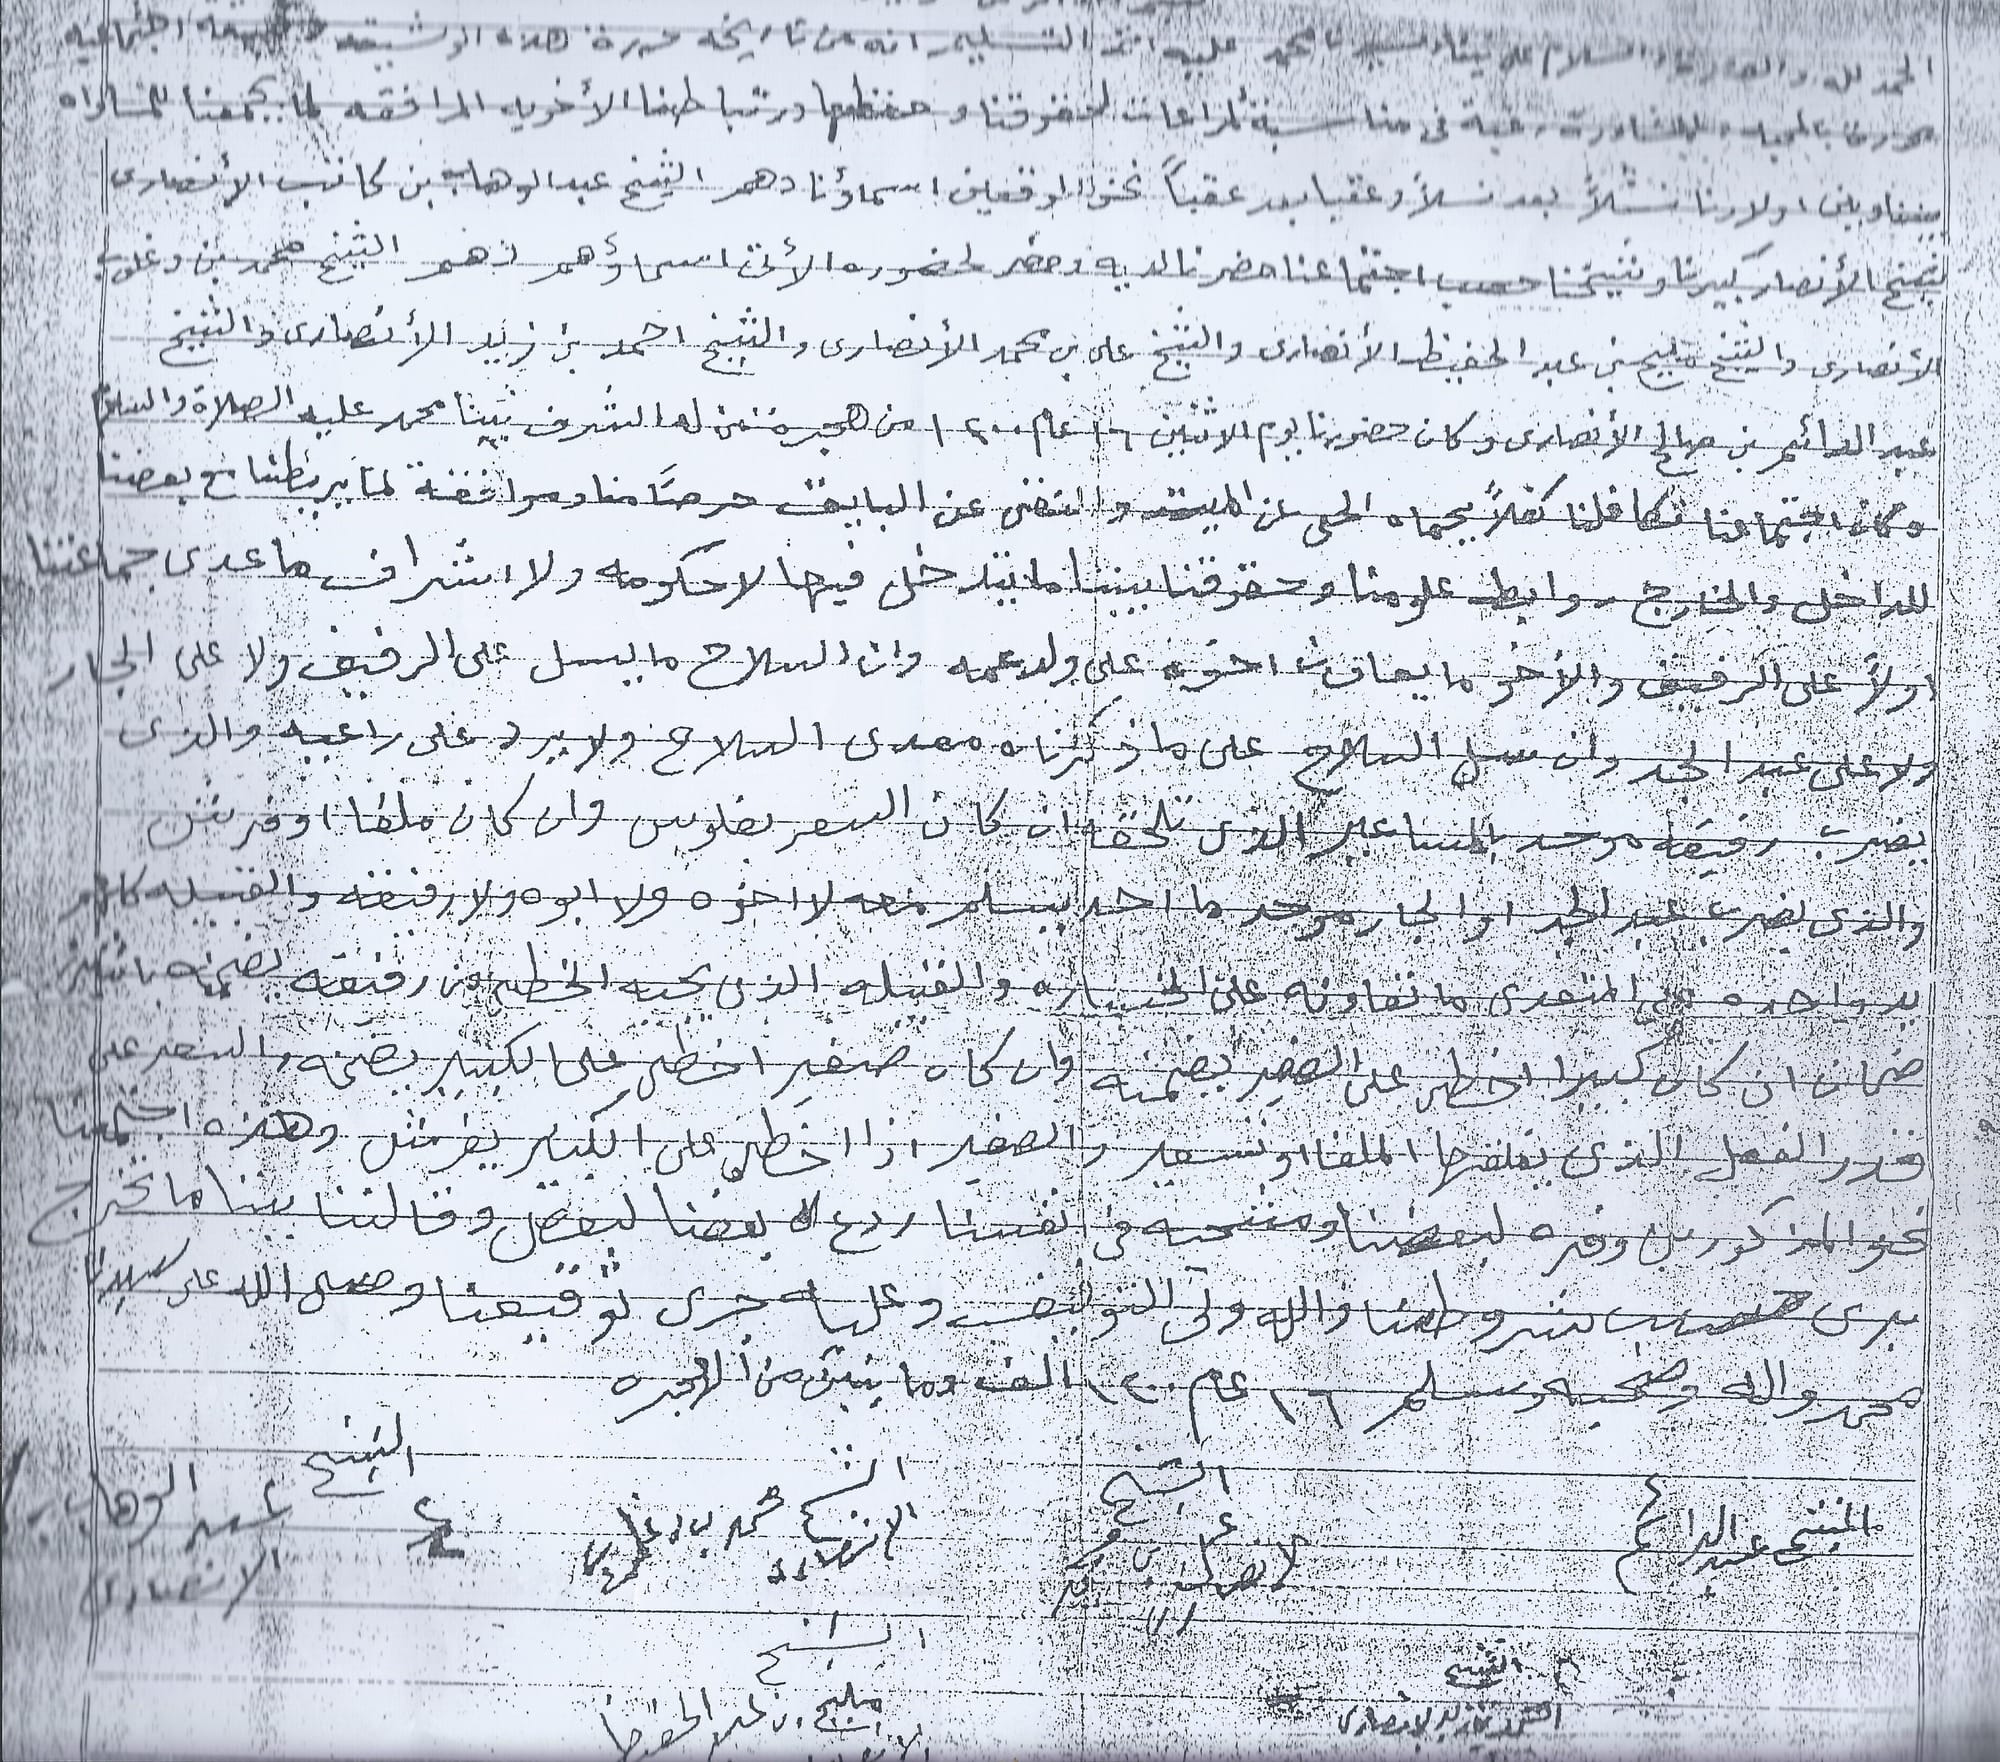 الحمد لله والصلاة والسلام على نبينا محمد عليه اتم التسليم انه من تاريخه حررة هذه الوشيقه اجتماعيه
رغبة في مناسبة لمراعات لحقوقنا وحفظها ورتباطنا الأخويه المرافقه لما يجمعنا للمساواه
بيننا وبين اولادنا نسلاً بعد نسلاً وعقبا بعد عقباً نحنو الموقعين اسماؤنا وهم الشيخ عبد الوهاب بن كاتب الأنصارى
شيخ الأنصار كبيرنا وشيخنا حسب اجتماعنا حضرنا لديه وحضر لحضوره الأتى اسماؤهم وهم الشيخ محمد بن
الأنصارى والشيخ مليح بن عبد الحفيظ الأنصارى والشيخ على بن محمد الأنصارى والشيخ احمد بن زيد الأنصارى والشيخ
عبد الدائم بن صالح الأنصارى وكان حضورنا يوم الاثنين ١٦ عام ١٢٠٠ من هجرة من له الشرف نبينا محمد عليه الصلاة والسلام
وكان اجتماعنا تكافلنا كفلاً يحماه الحى عن الميت والنقى عن البايق حرصاً منا وموافقة لما يربطنا مع بعضنا
للداخل والخارج روابط علومنا وحقوقنا بيننا ما يتدخل فيها لا حكومه ولا اشراف ما عدى جماعتنا
اولاً على الرفيق والأخو ما يعاون اخوه على ولد عمه وان السلاح ما يسل على الرفيق ولا على الجار
ولا على عبد الجد وان سل السلاح على ما ذكرناه معدى السلاح ولا يرد على راعيه والذى
يضرب رفيقه موحد المساعير الذى تلحقه ان كان السعر بفلوس وان كان ملفا او فرش
والذى يضرب عبد الجد او الجار موحد ما احد يسلم معه لا اخوه ولا ابوه ولا رفيقه والقبيله كلهم
يد واحده على المتعدى ما تعاونه على الخساره والقبيله الذى يجيه الخطى من رفيقه يضمنه
ضمان ان كان كبيرا اخطى على الصغير يضمنه وان كان صغير اخطى على الكبير يضمنه والسعر على
قدر الفعل الذى يلفها الملفا او تسعير والصغير اذا اخطى على الكبير يفرش وهذه اجتمعنا
نحنو المذكورين وفره لبعضنا ومشحيه فى انفسنا ردع لا بعضنا لبعض وقالتنا بيننا ما تخرج
برى حسب شروطنا والله ولى التوفيق وعليه جرى توقيعنا وصلى الله على سيدنا
محمد واله وصحبه وسلم ١٦ عام ١٢٠٠ الف وما يتين من الهجره
الشيخ عبد الدائم
الشيخ على بن محمد الانصارى
الشيخ محمد بن الانصارى
الشيخ عبد الوهاب الانصارى
الشيخ احمد بن زيد الانصارى
الشيخ مليح بن عبد الحفيظ